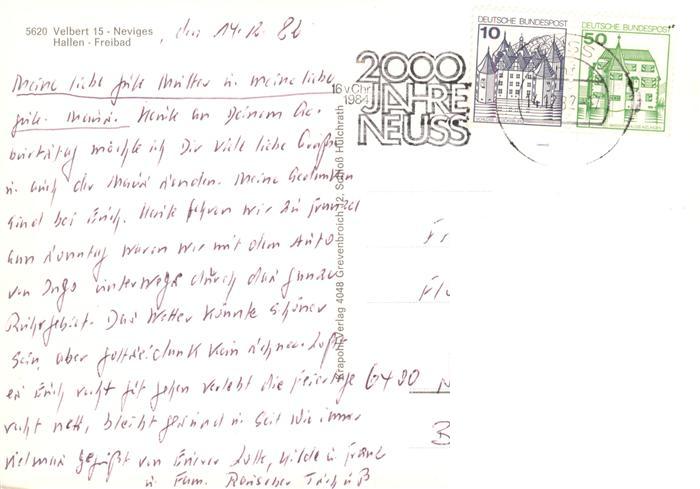 5620 Velbert 15 - Neviges
Hallen - Freibad
den 14.12. 82
Meine liebe gute Mutter u. meine liebe
gute Maria. Heute an Deinem Ge-
burtstag möchte ich Dir viele liebe Grüße
u. auch der Maria senden. Meine Gedanken
sind bei Euch. Heute fahren wir zu Franzel
am Sonntag waren wir mit dem Auto
von Ingo unterwegs durch das ganze
Ruhrgebiet. Das Wetter könnte schöner
sein, aber gottseidank kein Schnee. Laßt
es Euch recht gut gehen verlebt die Feiertage
recht nett, bleibt gesund u. seit wie immer
vielmals gegrüßt von Eurer Lotte, Hilde u. Franz
u. Fam.
Krapohl-Verlag 4048 Grevenbroich 12, Schloß Hülchrath
16 v.Chr.
1984
2000
JAHRE
NEUSS
DEUTSCHE BUNDESPOST
10
DEUTSCHE BUNDESPOST
50
14.12.82
Fr
6490
B